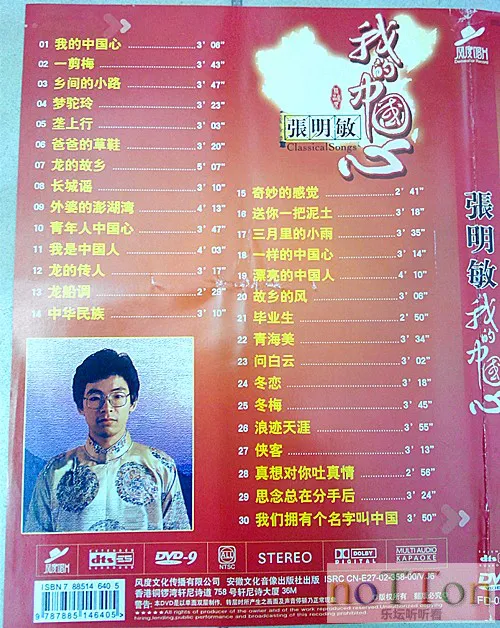 01 我的中国心 3' 06"
02 一剪梅 3' 43"
03 乡间的小路 3' 47"
04 梦驼玲 3' 23"
05 垄上行 3' 03"
06 爸爸的草鞋 3' 20"
07 龙的故乡 5' 07"
08 长城谣 3' 10"
09 外婆的澎湖湾 4' 13"
10 青年人中国心 3' 47"
11 我是中国人 4' 03"
12 龙的传人 3' 17"
13 龙船调 2' 25"
14 中华民族 3' 10"
我的中國心
張明敏
ClassicalSongs
15 奇妙的感觉 2' 41"
16 送你一把泥土 3' 18"
17 三月里的小雨 3' 35"
18 一样的中国心 3' 14"
19 漂亮的中国人 4' 10"
20 故乡的风 3' 06"
21 毕业生 2' 50"
22 青海美 3' 34"
23 问白云 3' 02"
24 冬恋 3' 18"
25 冬梅 3' 45"
26 浪迹天涯 3' 55"
27 侠客 3' 13"
28 真想对你吐真情 2' 56"
29 思念总在分手后 3' 24"
30 我们拥有个名字叫中国 3' 50"
風度唱片
張明敏
我的中國心
dts
DVD-9
ALL
NTSC
STEREO
DOLBY
DIGITAL
MULTI AUDIO
KARAOKE
ISBN 7 88514 640 5
9787885146405
风度文化传播有限公司 安徽文化音像出版社出版 ISRC CN-E27-02-358-00/V.J6
香港铜锣湾轩尼诗道 758 号轩尼诗大厦 36M
版权所有
警告: 本DVD是以单面双层制作
All rights of producer of the owner of the work reproduced reserved. Unauthorized copying
hiring,lending,public performance and broadcasting of this
乐坛听听看